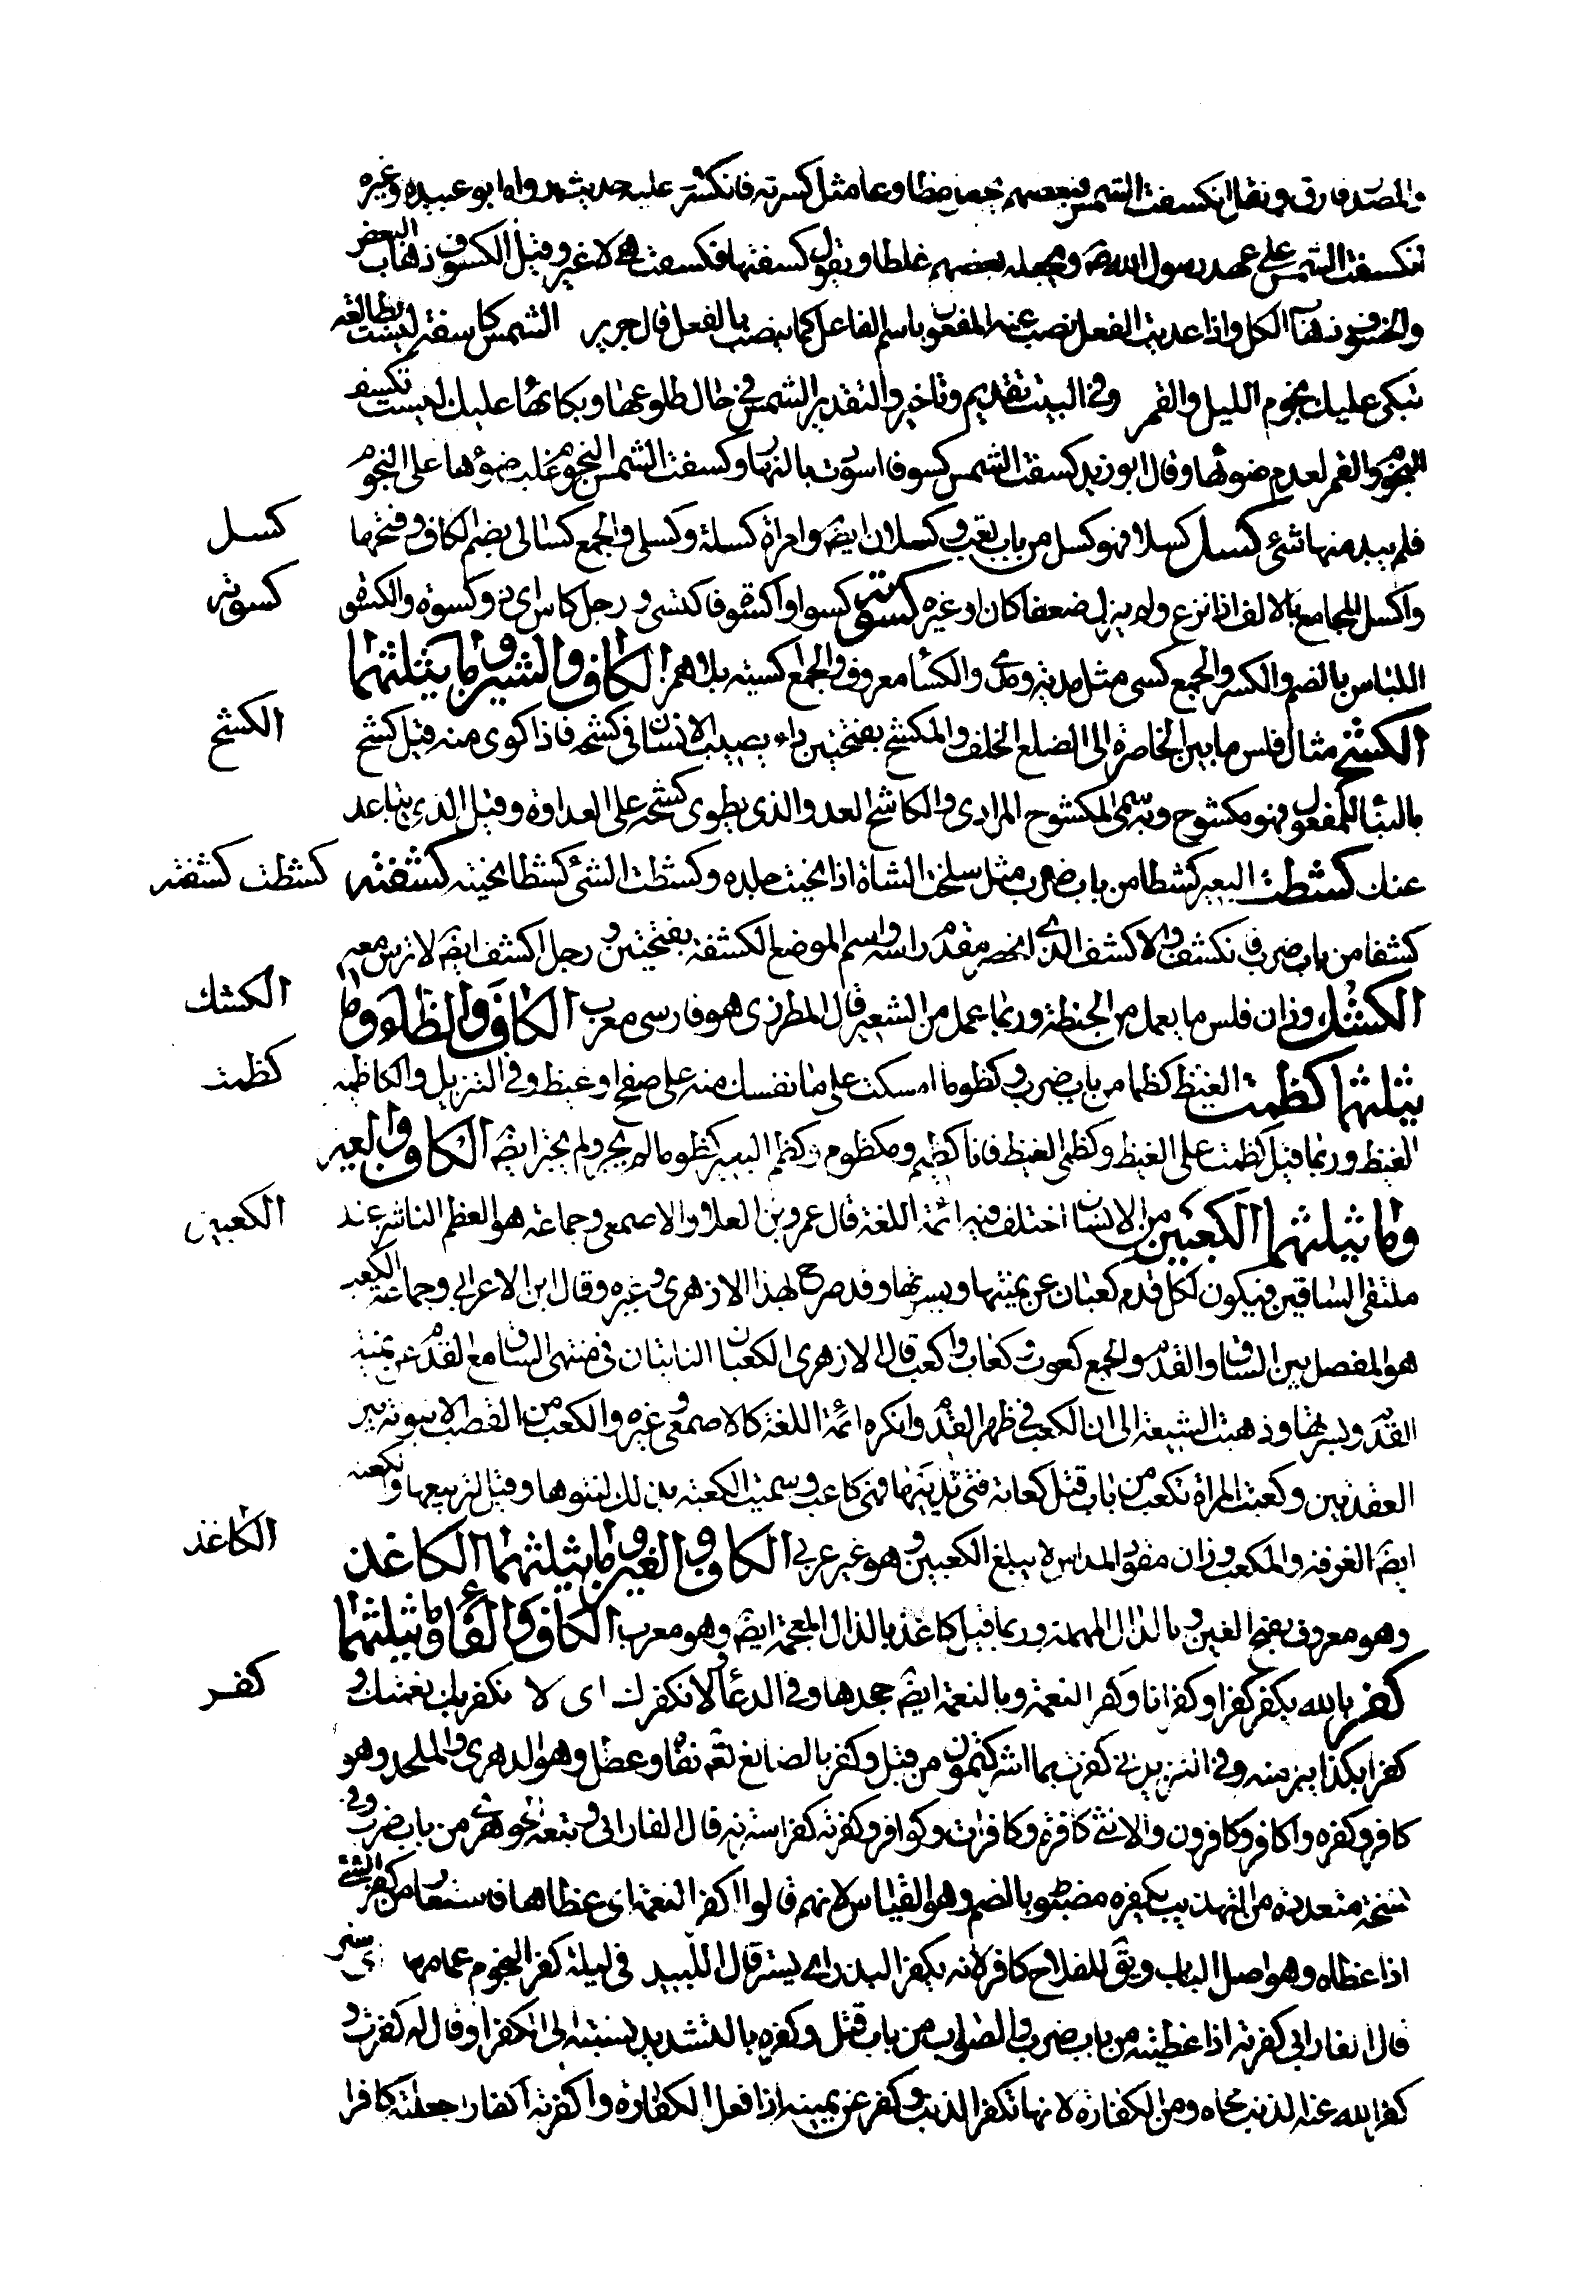 والمصدر فارق ونقل انكسفت الشمس فبعضهم يجعله مطاوعا مثل كسرته فانكسر وعليه حديث رواه ابو عبيده وغيره
انكسفت الشمس على عهد رسول الله ص وبعضهم يجعله غلطا ويقول كسفتها فكسفت هي لا غير وقيل الكسوف ذهاب البعض
والخسوف ذهاب الكل واذا عديت الفعل نصبت عنه المفعول باسم الفاعل كما ينصب بالفعل قال جرير الشمس كاسفة ليست بطالعة
تبكى عليك نجوم الليل والقمر وفى البيت تقديم وتاخير والتقدير الشمس فى حال طلوعها وبكائها عليك ليست تكسف
النجوم والقمر لعدم ضوئها وقال ابو زيد كسفت الشمس كسوفا اسودت بالنهار وكسفت الشمس النجوم غلب ضوءها على النجوم
فلم يبد منها شئ كسل كسلا فهو كسل من باب تعب وكسلان ايضا وامراة كسلة وكسلى والجمع كسالى بضم الكاف وفتحها
كسل
واكسل المجامع بالالف اذا نزع ولم ينزل ضعفا كان او غيره كسوته كسوا واكسوه فاكتسى ورجل كاس اى ذو كسوة والكسوة
كسوته
اللباس بالضم والكسر والجمع كسى مثل مدية ومدى والكساء معروف والجمع اكسية بلا همز الكاف والشين وما يثلثهما
الكشح مثال فلس ما بين الخاصرة الى الضلع الخلف والكشح بفتحتين داء يصيب الانسان فى كشحه فاذا كوى منه قيل كشح
الكشح
بالبناء للمفعول فهو مكشوح وبه سمى المكشوح المرادى والكاشح العدو الذى يطوى كشحه على العداوة وقيل الذى يتباعد
عنك كشطت البعير كشطا من باب ضرب مثل سلخت الشاة اذا نحيت جلده وكشطت الشئ كشطا نحيته كشفته
كشطت كشفته
كشفا من باب ضرب فانكشف والاكشف الذى انحسر مقدم راسه واسم الموضع الكشفة بفتحتين ورجل اكشف ايضا لا ترس معه
الكشك وزان فلس ما يعمل من الحنطة وربما عمل من الشعير قال المطرزى هو فارسى معرب الكاف والظاء وما
الكشك
يثلثهما كظمت الغيظ كظما من باب ضرب وكظوما امسكت على ما نفسك منه على صفح او غيظ وفى التنزيل والكاظمين
كظمت
الغيظ وربما قيل كظمت على الغيظ وكظمنى الغيظ فانا كظيم ومكظوم وكظم البعير كظوما لم يجتر ولم يخبر ايضا الكاف والعين
وما يثلثهما الكعبين من الانسان اختلف فيه ائمة اللغة قال عمرو بن العلاء والاصمعى وجماعة هو العظم الناشز عند
الكعبين
ملتقى الساقين فيكون لكل قدم كعبان عن يمينها ويسرتها وقد صرح بهذا الازهرى وغيره وقال ابن الاعرابى وجماعة الكعب
هو المفصل بين الساق والقدم والجمع كعوب وكعاب واكعب قال الازهرى الكعبان الناتئان فى منتهى الساق مع القدم عن يمنة
القدم ويسرتها وذهبت الشيعة الى ان الكعب فى ظهر القدم وانكره ائمة اللغة كالاصمعى وغيره والكعب من القصب الانبوبة بين
العقدتين وكعبت المراة تكعب من باب قتل كعابة نتئ ثديها فهى كاعب وسميت الكعبة بذلك لنتوها وقيل لتربيعها والكعبة
ايضا الغرفة والمكعب وزان مقود المداس لا يبلغ الكعبين وهو غير عربى الكاف والغين وما يثلثهما الكاغد
الكاغذ
وهو معروف بفتح الغين وبالدال المهملة وربما قيل كاغذ بالذال المعجمة ايضا وهو معرب الكاف والفاء وما يثلثهما
كفر بالله يكفر كفرا وكفرانا وكفر النعمة وبالنعمة ايضا جحدها وفى الدعاء ولا نكفرك اى لا نكفر بك نعمتك و
كفر
كفر بكذا يتبرء منه وفى التنزيل انى كفرت بما اشركتمون من قبل وكفر بالصانع نفاه وعطل وهو الدهرى والملحد وهو
كافر وكفرة واكافر وكافرون والانثى كافرة وكافرات وكوافر وكفرته كفرا سترته قال الفارابى وتبعه الجوهرى من باب ضرب وفى
نسخة متعددة من التهذيب يكفره مضبوط بالضم وهو القياس لانهم قالوا كفر النعمة اى غطاها مستعار من كفر الشئ
اذا غطاه وهو اصل الباب ويق للفلاح كافر لانه يكفر البذر اى يستره قال لبيد فى ليلة كفر النجوم غمامها اى ستر
قال الفارابى كفرته اذا غطيته من باب ضرب والصواب من باب قتل وكفره بالتشديد نسبته الى الكفر او قال له كفرت و
كفر الله عنه الذنب محاه ومن الكفارة لانها تكفر الذنب وكفر عن يمينه اذا فعل الكفارة واكفرته اكفارا جعلته كافرا